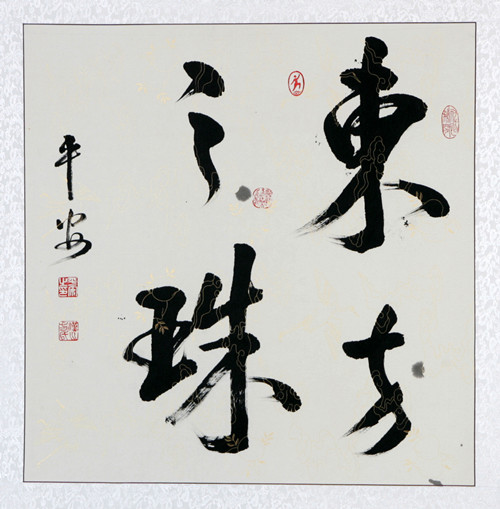 東方
之珠
平安